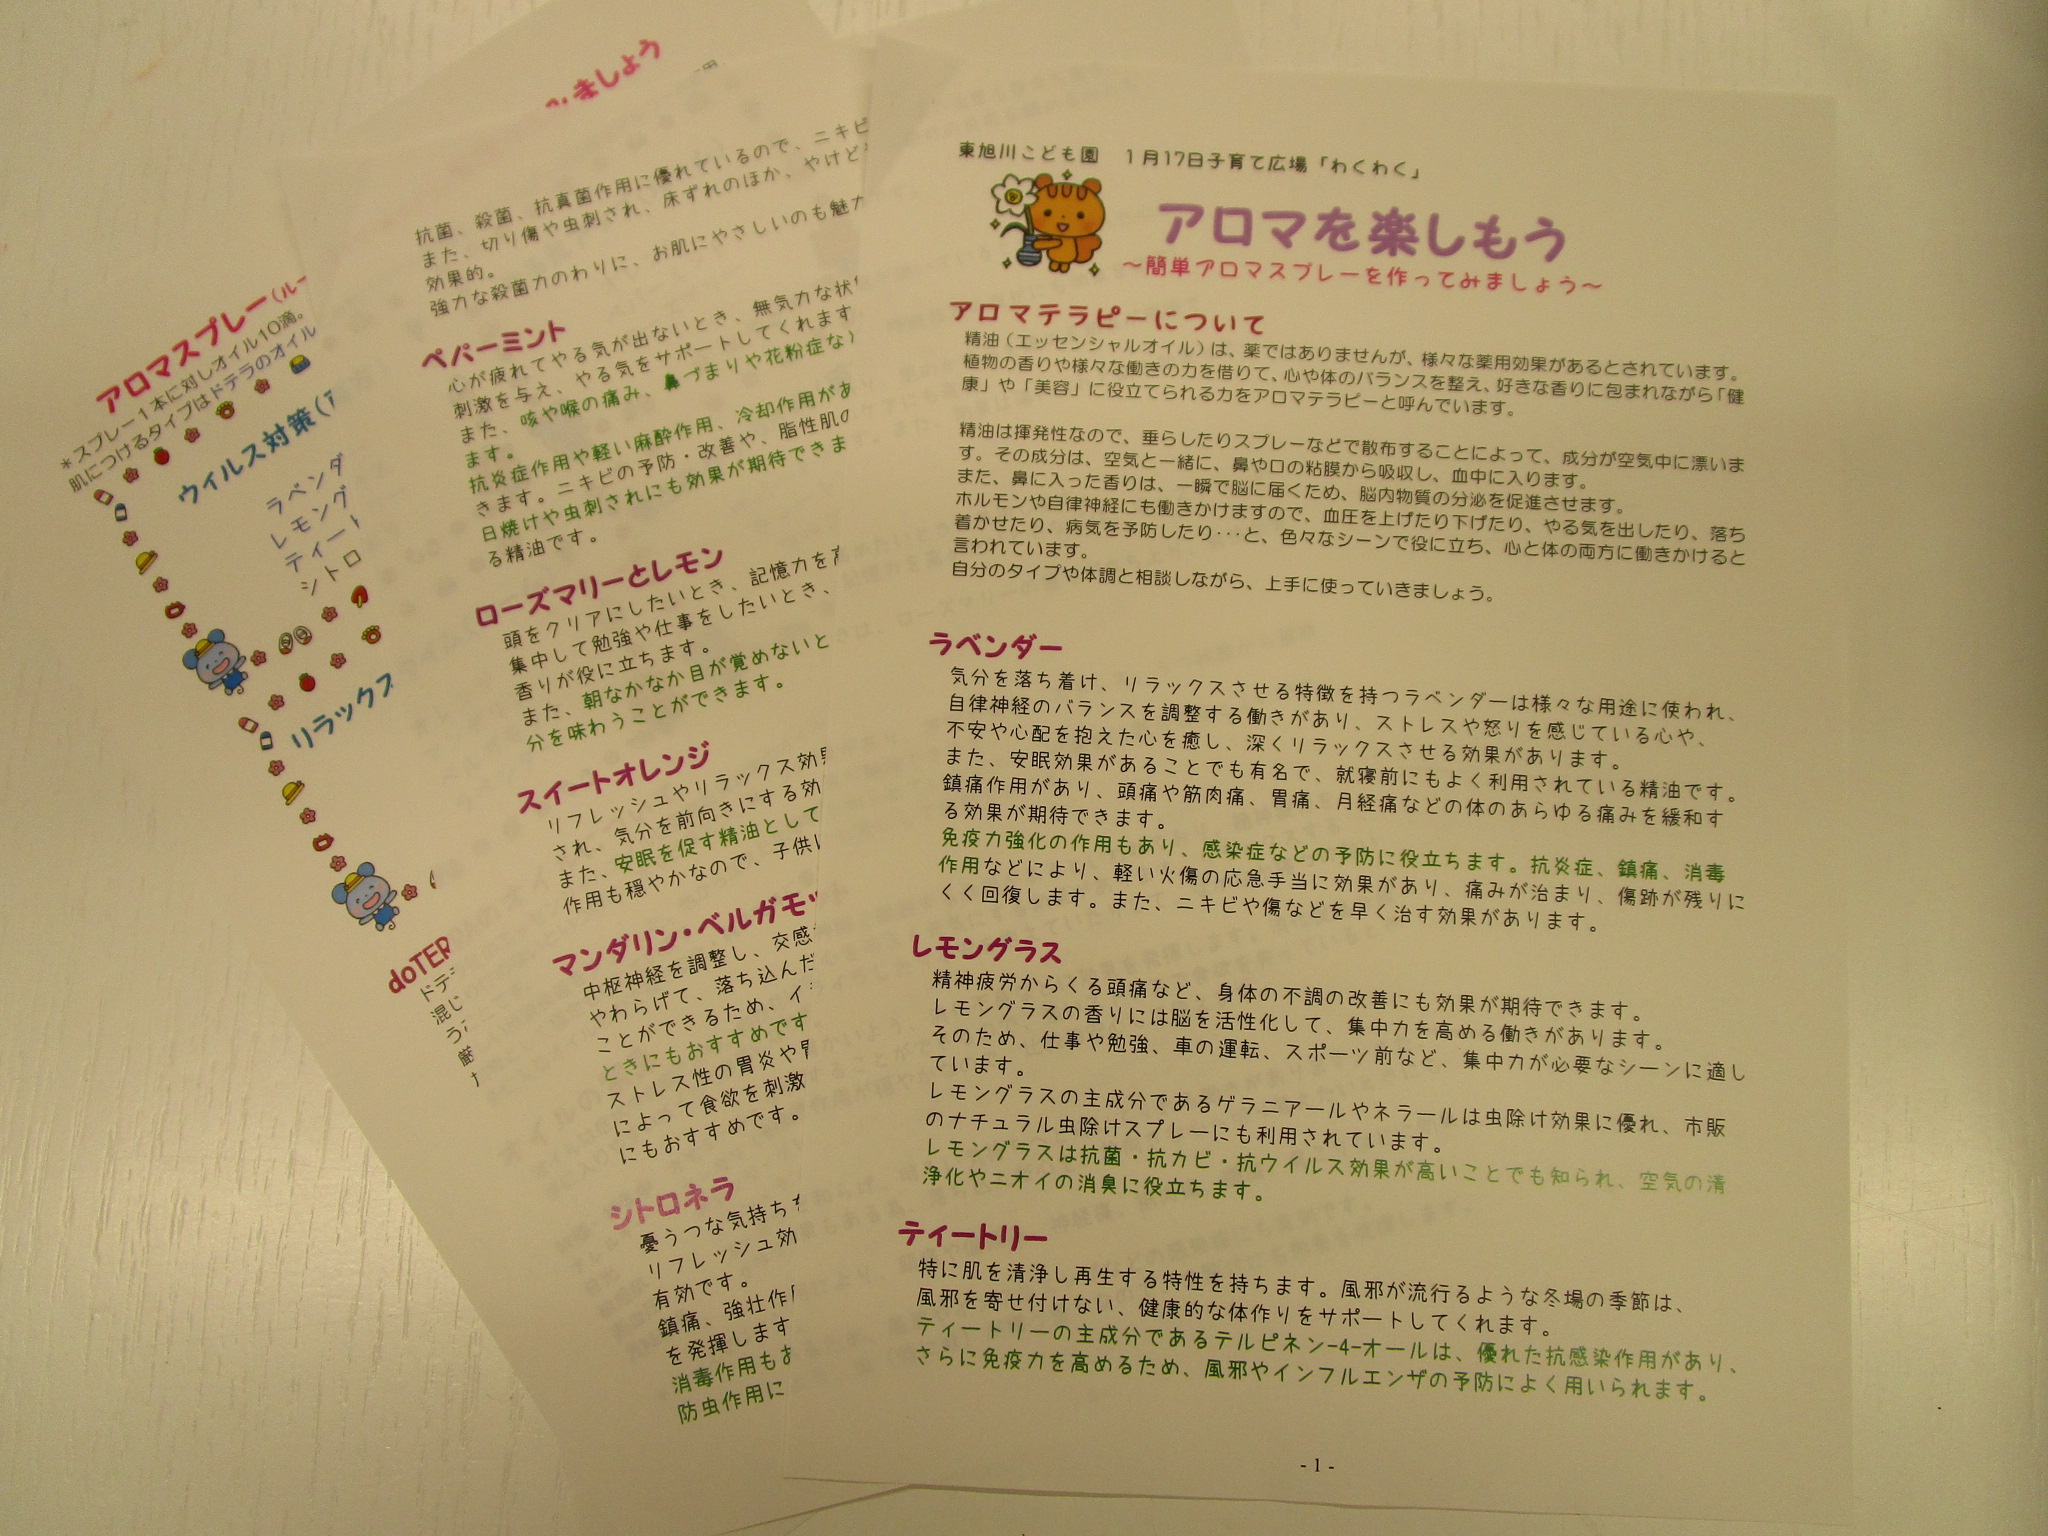 東旭川こども園　1月17日子育て広場「わくわく」
アロマを楽しもう
～簡単アロマスプレーを作ってみましょう～
アロマテラピーについて
精油（エッセンシャルオイル）は、薬ではありませんが、様々な薬用効果があるとされています。
植物の香りや様々な働きの力を借りて、心や体のバランスを整え、好きな香りに包まれながら「健
康」や「美容」に役立てられる力をアロマテラピーと呼んでいます。
精油は揮発性なので、垂らしたりスプレーなどで散布することによって、成分が空気中に漂いま
す。その成分は、空気と一緒に、鼻や口の粘膜から吸収し、血中に入ります。
また、鼻に入った香りは、一瞬で脳に届くため、脳内物質の分泌を促進させます。
ホルモンや自律神経にも働きかけますので、血圧を上げたり下げたり、やる気を出したり、落ち
着かせたり、病気を予防したり･･･と、色々なシーンで役に立ち、心と体の両方に働きかけると
言われています。
自分のタイプや体調と相談しながら、上手に使っていきましょう。
ラベンダー
気分を落ち着け、リラックスさせる特徴を持つラベンダーは様々な用途に使われ、
自律神経のバランスを調整する働きがあり、ストレスや怒りを感じている心や、
不安や心配を抱えた心を癒し、深くリラックスさせる効果があります。
また、安眠効果があることでも有名で、就寝前にもよく利用されている精油です。
鎮痛作用があり、頭痛や筋肉痛、胃痛、月経痛などの体のあらゆる痛みを緩和す
る効果が期待できます。
免疫力強化の作用もあり、感染症などの予防に役立ちます。抗炎症、鎮痛、消毒
作用などにより、軽い火傷の応急手当に効果があり、痛みが治まり、傷跡が残りに
くく回復します。また、ニキビや傷などを早く治す効果があります。
レモングラス
精神疲労からくる頭痛など、身体の不調の改善にも効果が期待できます。
レモングラスの香りには脳を活性化して、集中力を高める働きがあります。
そのため、仕事や勉強、車の運転、スポーツ前など、集中力が必要なシーンに適し
ています。
レモングラスの主成分であるゲラニアールやネラールは虫除け効果に優れ、市販
のナチュラル虫除けスプレーにも利用されています。
レモングラスは抗菌・抗カビ・抗ウイルス効果が高いことでも知られ、空気の清
浄化やニオイの消臭に役立ちます。
ティートリー
特に肌を清浄し再生する特性を持ちます。風邪が流行るような冬場の季節は、
風邪を寄せ付けない、健康的な体作りをサポートしてくれます。
ティートリーの主成分であるテルピネン-4-オールは、優れた抗感染作用があり、
さらに免疫力を高めるため、風邪やインフルエンザの予防によく用いられます。
- 1 -
抗菌、殺菌、抗真菌作用に優れているので、ニキビ
また、切り傷や虫刺され、床ずれのほか、やけど
効果的。
強力な殺菌力のわりに、お肌にやさしいのも魅力
ペパーミント
心が疲れてやる気が出ないとき、無気力な状
刺激を与え、やる気をサポートしてくれます
また、咳や喉の痛み、鼻づまりや花粉症な
ます。
抗炎症作用や軽い麻酔作用、冷却作用があ
きます。ニキビの予防・改善や、脂性肌の
日焼けや虫刺されにも効果が期待できま
る精油です。
ローズマリーとレモン
頭をクリアにしたいとき、記憶力を高
集中して勉強や仕事をしたいとき、
香りが役に立ちます。
また、朝なかなか目が覚めないと
分を味わうことができます。
スイートオレンジ
リフレッシュやリラックス効果
され、気分を前向きにする効
また、安眠を促す精油として
作用も穏やかなので、子供に
マンダリン・ベルガモッ
中枢神経を調整し、交感
やわらげて、落ち込んだ
ことができるため、イ
ときにもおすすめです
ストレス性の胃炎や胃
によって食欲を刺激
にもおすすめです。
シトロネラ
憂うつな気持ち
リフレッシュ効
有効です。
鎮痛、強壮作用
を発揮します
消毒作用もお
防虫作用に
みましょう
アロマスプレー（ルー
＊スプレー1本に対しオイル10滴。
肌につけるタイプはドテラのオイル
ウィルス対策（
ラベンダ
レモング
ティート
シトロ
リラックス
doTER
ドテ
混じ
う
厳